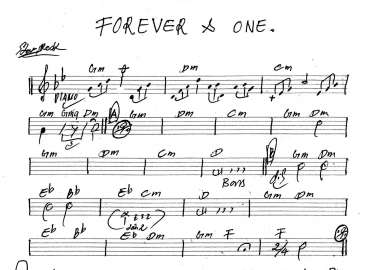 FOREVER & ONE.
Slow Rock
Gm A Dm Cm
PIANO
Gm Gm9 Dm A Gm Dm Cm Gm
Gm Dm Cm D B Gm Dm
Bass
Eb Bb Eb Cm D Gm Dm
Eb Bb Eb Dm Gm F F
2/4